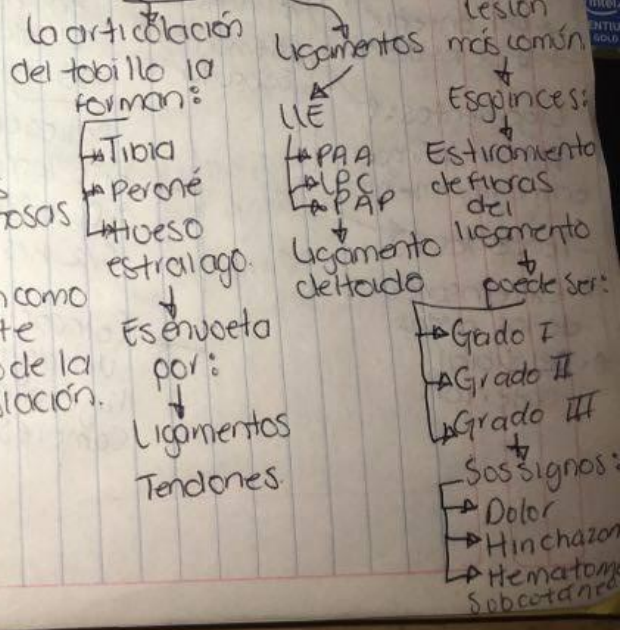 la articulación
del tobillo la
forman:
Tibia
Peroné
Hueso
estralago.
Es envoeta
por:
Ligamentos
Tendones.
Ligamentos
LLE
PAA
LPC
PAP
Ligamento
deltoido
Lesión
más común
Esgoinces:
Estiramiento
de fibras
del
ligamento
puede ser:
Gado I
Grado II
Grado III
Sos signos:
Dolor
Hinchazon
Hematoma
Sobcotaneo
osas
como
te
de la
lación.